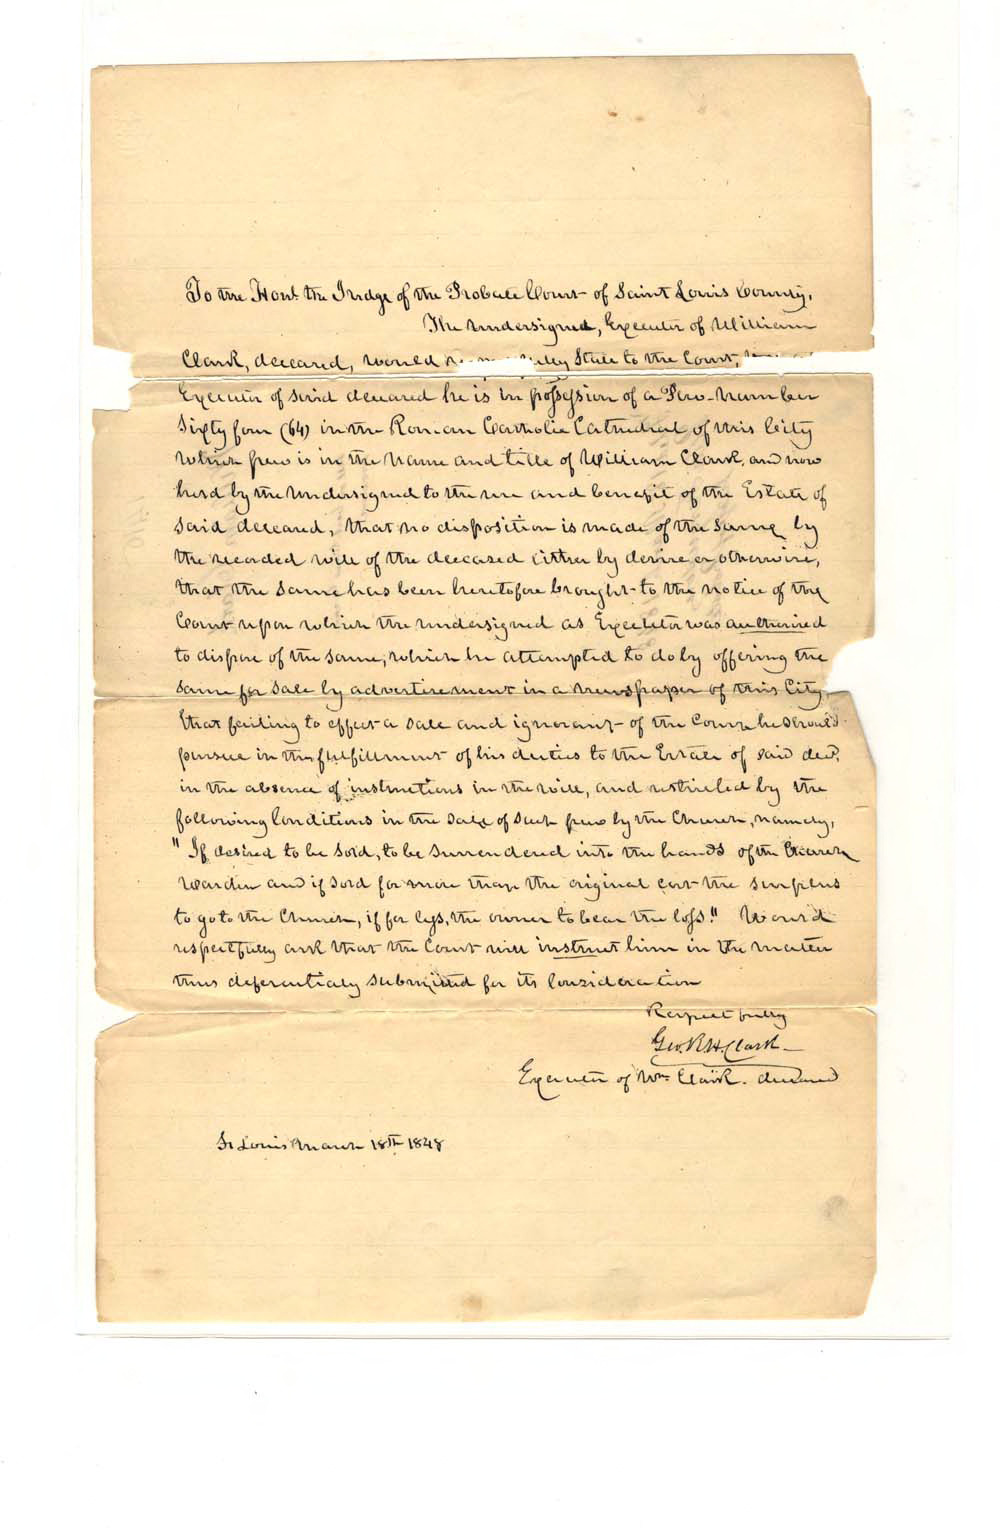 To the Honl. the Judge of the Probate Court of Saint Louis County,
The undersigned, Executor of William
Clark, deceased, would state to the Court,
Executor of said deceased he is in possession of a Pew Number
Sixty four (64) in the Roman Catholic Cathedral of this City
which pew is in the name and title of William Clark, and now
held by the undersigned to the use and benefit of the Estate of
said deceased, that no disposition is made of the same by
the recorded will of the deceased either by devise or otherwise,
that the same has been heretofore brought to the notice of the
Court upon which the undersigned as Executor was authorised
to dispose of the same, which he attempted to do by offering the
same for sale by advertisement in a newspaper of this City,
that failing to effect a sale and ignorant of the course he should
pursue in the fulfillment of his duties to the Estate of said decd.
in the absence of instructions in the will, and restricted by the
following Conditions in the sale of such pew by the Church, namely,
"If desired to be sold, to be surrendered into the hands of the Church
Warden and if sold for more than the original cost the surplus
to go to the Church, if for less, the owner to bear the loss." Would
respectfully ask that the Court will instruct him in the matter
thus deferentialy submitted for its consideration
Respectfully
Geo. R H Clark
Executor of Wm. Clark. deceased
St Louis March 18th 1848